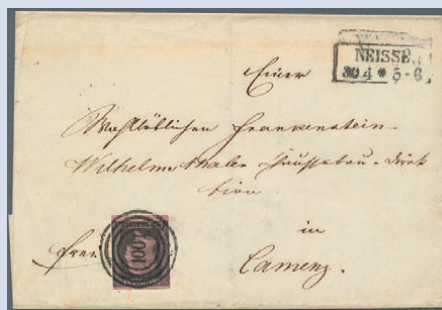 NEISSE
30 4 * 5-6
Einer
Wohllöblichen Frankenstein-
Wilhelmsthaler Chausseebau-Direk
tion
in
Camenz.